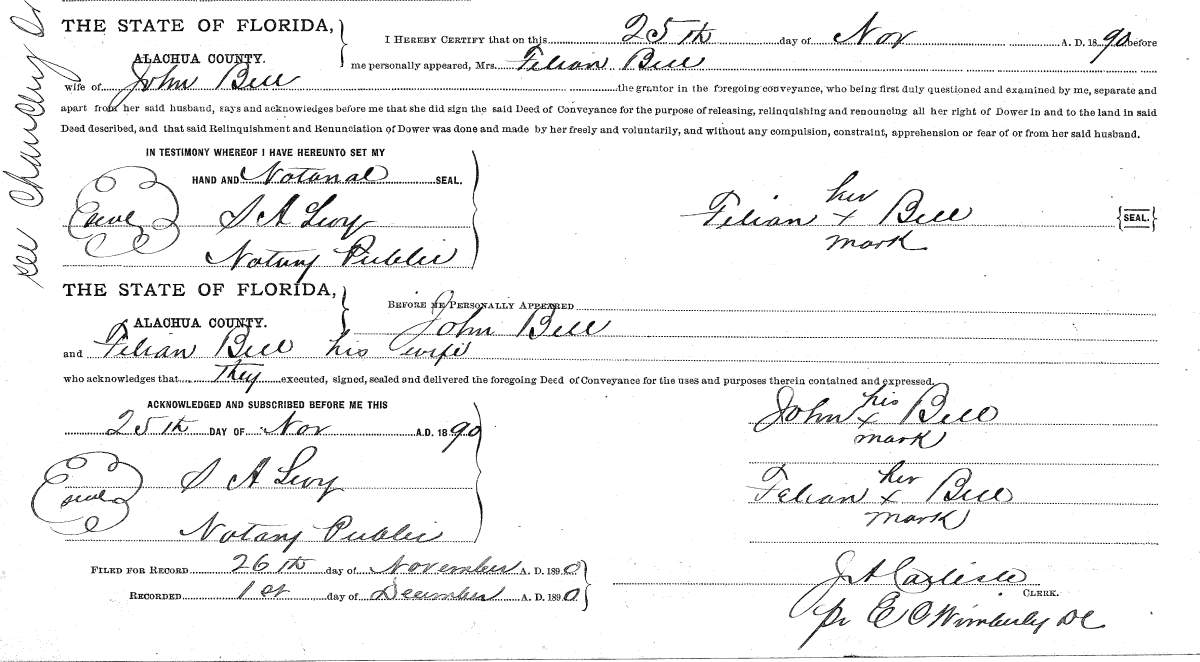 see Chancery Or
THE STATE OF FLORIDA,
ALACHUA COUNTY.
I HEREBY CERTIFY that on this 25th day of Nov A. D. 1890 before
me personally appeared, Mrs. Felian Bell
wife of John Bell the grantor in the foregoing conveyance, who being first duly questioned and examined by me, separate and
apart from her said husband, says and acknowledges before me that she did sign the said Deed of Conveyance for the purpose of releasing, relinquishing and renouncing all her right of Dower in and to the land in said
Deed described, and that said Relinquishment and Renunciation of Dower was done and made by her freely and voluntarily, and without any compulsion, constraint, apprehension or fear of or from her said husband.
IN TESTIMONY WHEREOF I HAVE HEREUNTO SET MY
HAND AND Notarial SEAL.
Seal S A Levy
Notary Public
her
Felian x Bell {SEAL.}
mark
THE STATE OF FLORIDA,
ALACHUA COUNTY.
BEFORE ME PERSONALLY APPEARED
John Bell
and Felian Bell his wife
who acknowledges that They executed, signed, sealed and delivered the foregoing Deed of Conveyance for the uses and purposes therein contained and expressed.
ACKNOWLEDGED AND SUBSCRIBED BEFORE ME THIS
25th DAY OF Nov A.D. 1890
Seal S A Levy
Notary Public
his
John x Bell
mark
her
Felian x Bell
mark
FILED FOR RECORD 26th day of November A. D. 1890
RECORDED 1st day of December A. D. 1890
J A Carlisle
CLERK.
pr E C Wimberly DC